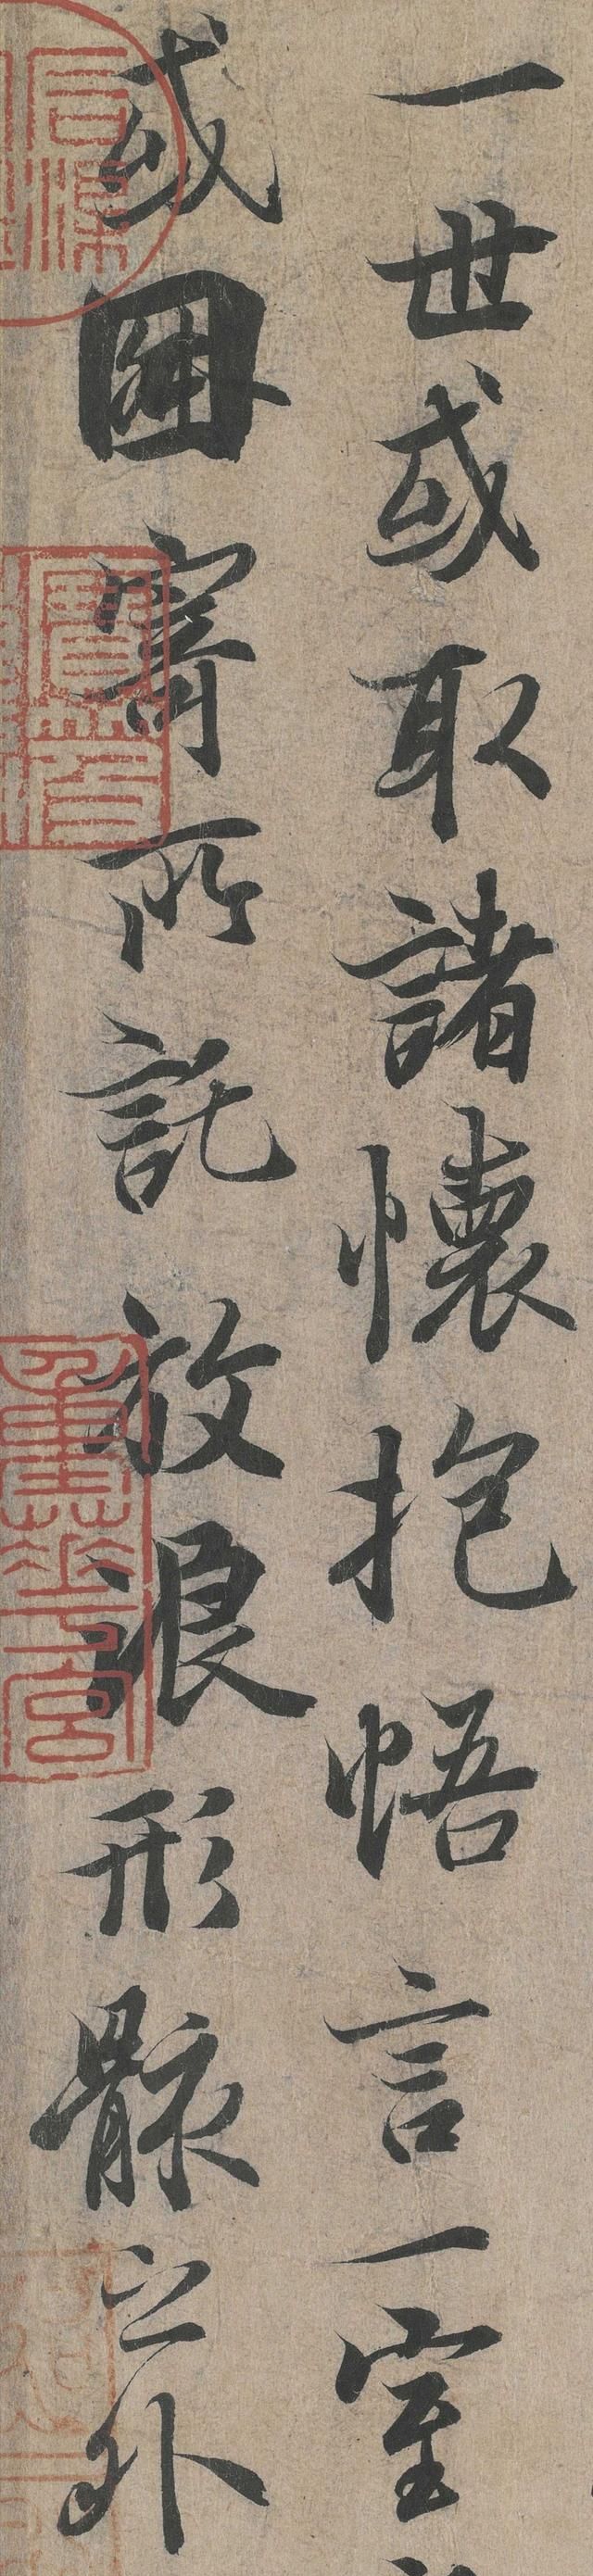 一世或取諸懷抱悟言一室
或因寄所託放浪形骸之外
重華宮